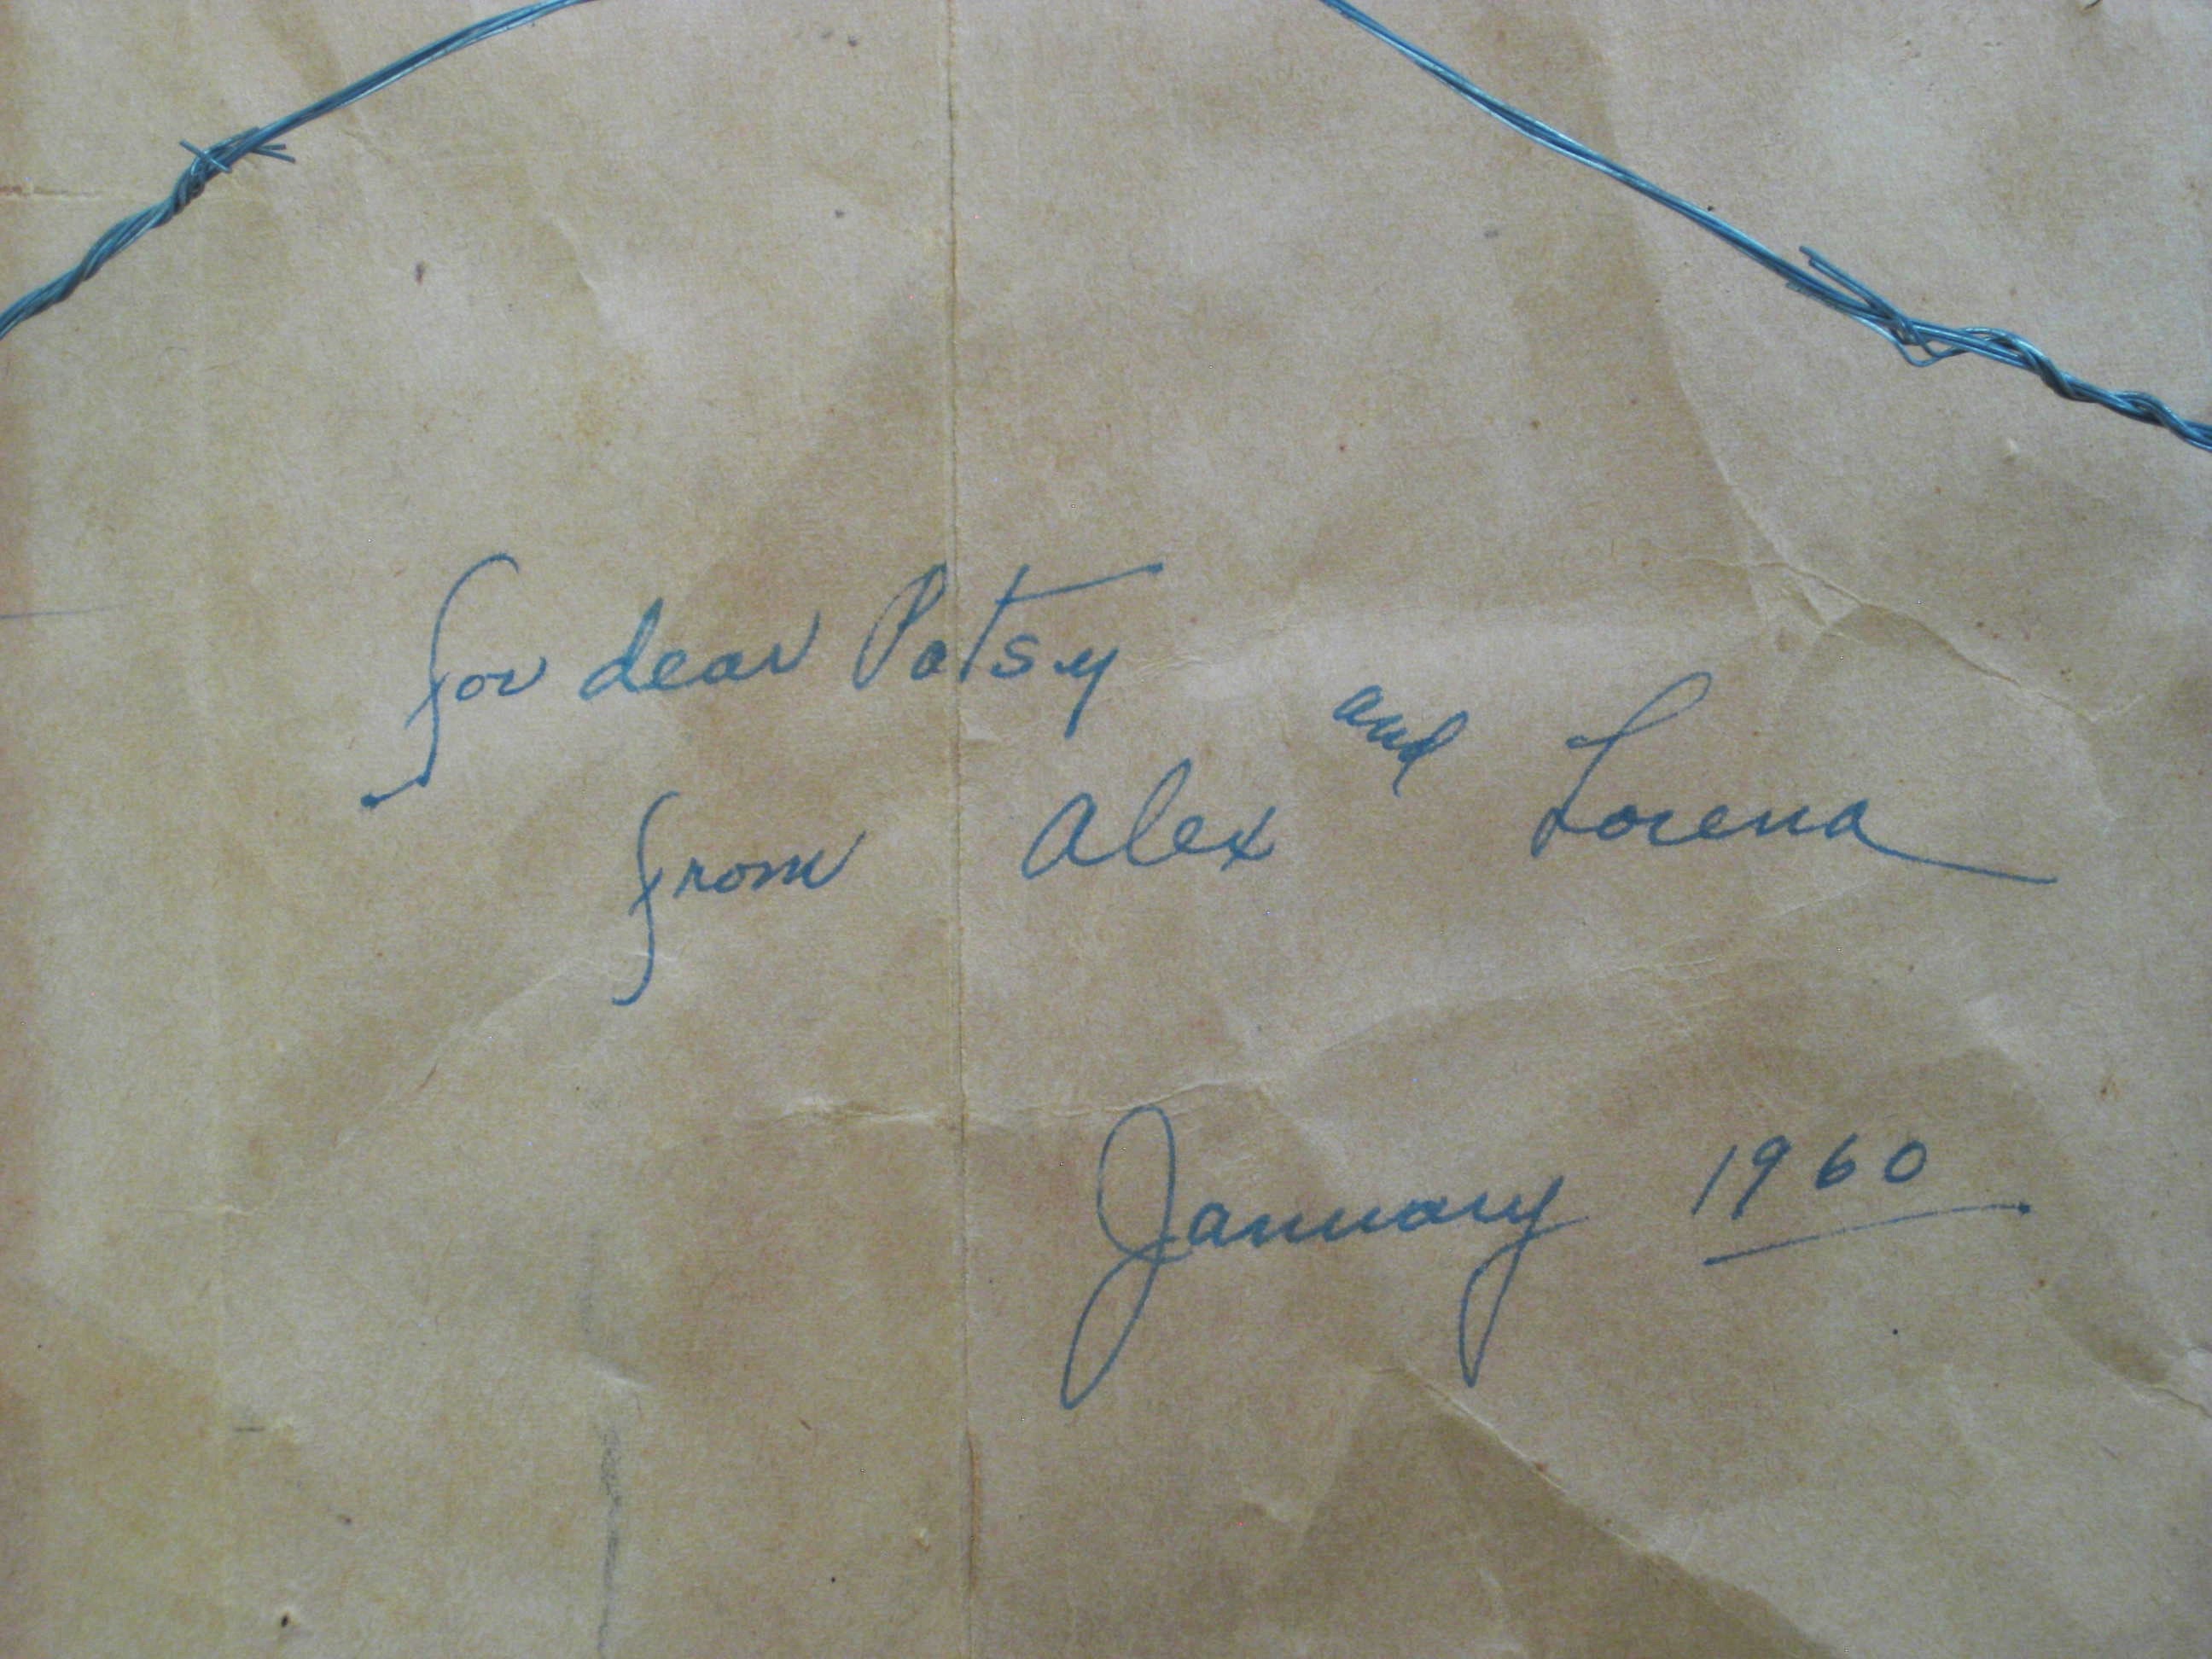 for dear Patsy
from Alex and Lorena
January 1960